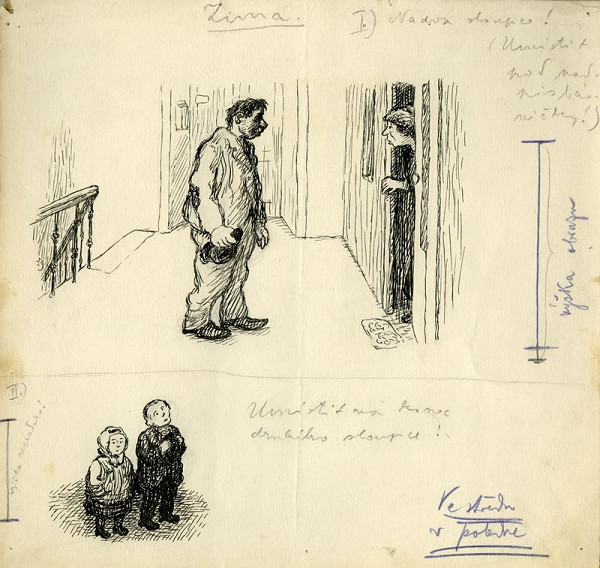 Zima.
I.) Na dva sloupce!
(Umístit
pod nad-
pis bás-
ničky!)
výška obrazu
II.)
Umístit na konec
druhého sloupce!
Ve středu
v poledne